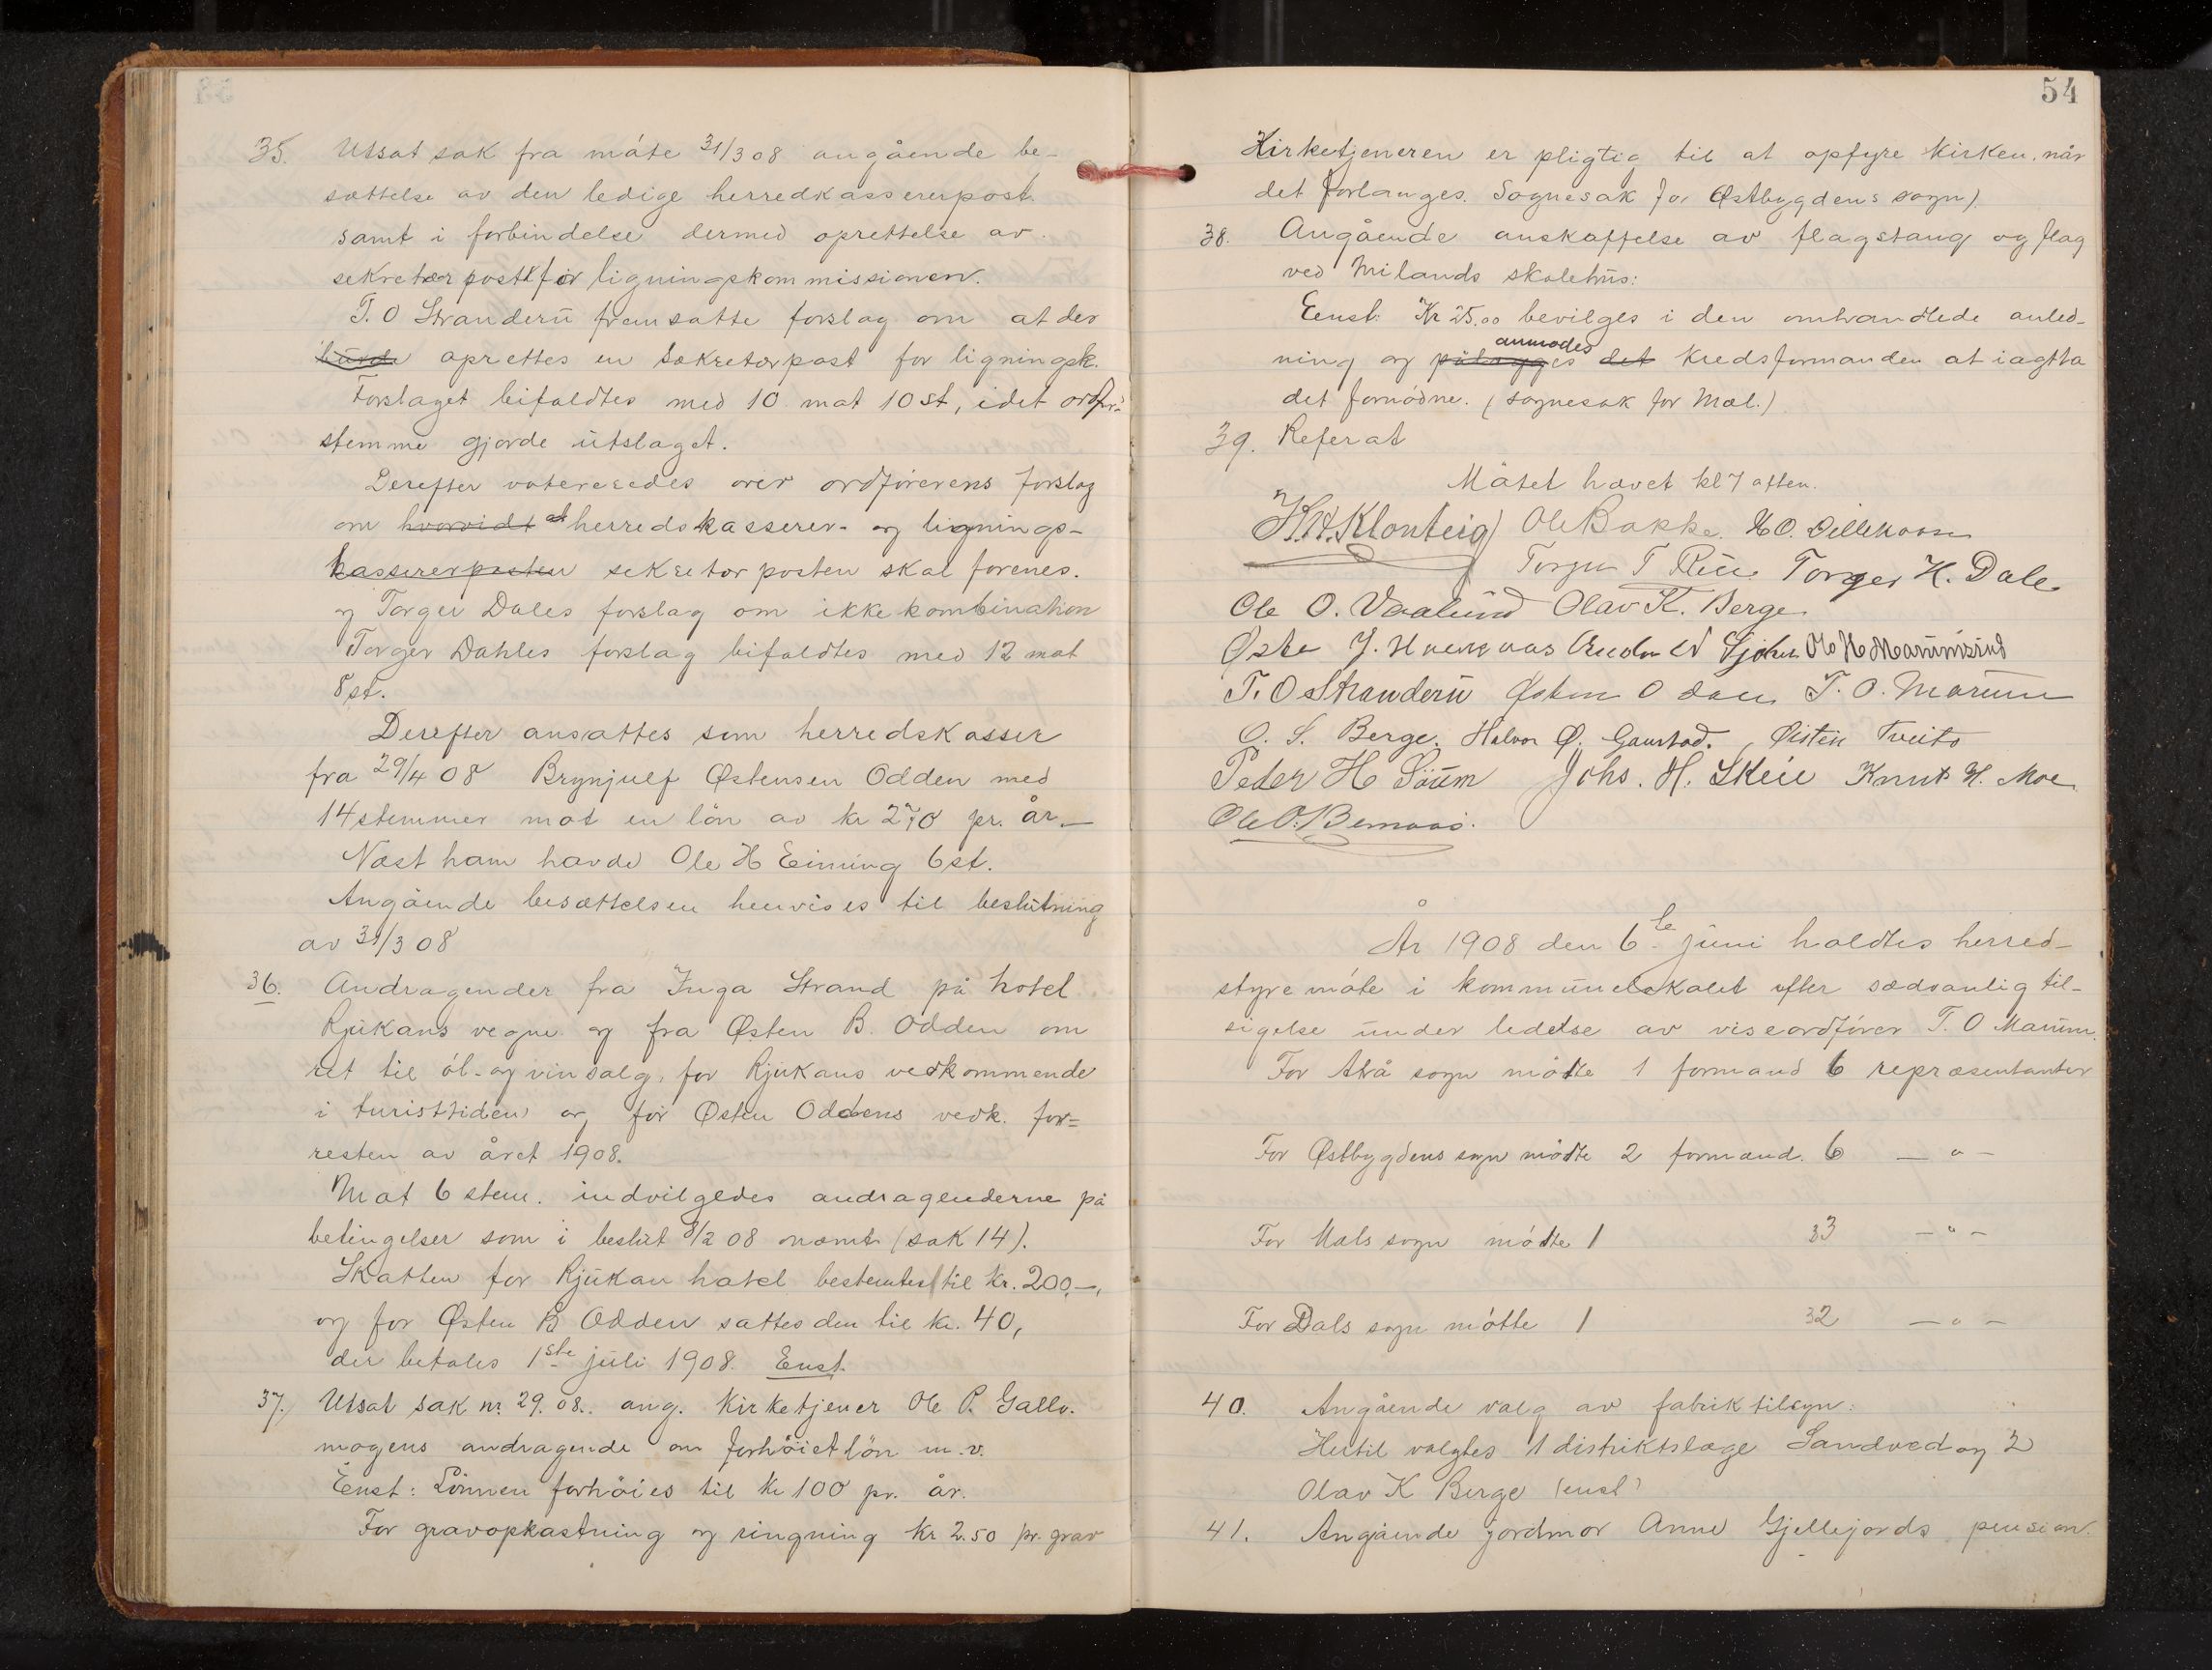 35. Utsat sak fra møte 31/3 08 angående be-
sættelse av den ledige herredkassererpost.
samt i forbindelse dermed oprettelse av
sekretærpost før ligningskommissionen.
T. O Stranderu fremsatte forslag om at der
burde oprettes en Sekretærpost for ligningsk.
Forslaget bifaldtes med 10 mot 10 st, idet ordfr.
stemme gjorde utslaget.
Derefter voteredes over ordførerens forslag
om hvorvidt at herredskasserer- og lignings-
kassererposten sekretærposten skal forenes.
og Torger Dales forslag om ikke kombination
Torger Dahles forslag bifaldtes med 12 mot
8 st.
Derefter ansattes som herredskasser
fra 29/4 08 Brynjulf Østensen Odden med
14 stemmer mot en løn av kr 270 pr. år.—
Næst ham havde Ole H Eining 6 st.
Angående besættelsen henvises til beslutning
av 31/3 08
36. Andragender fra Inga Strand på hotel
Rjukans vegne og fra Østen B. Odden om
ret til øl- og vinsalg, for Rjukans vedkommende
i turisttiden og før Østen Oddens vedk. for=
resten av året 1908.
Mot 6 stem. indvilgedes andragenderne på
betingelser som i beslut 8/2 08 nævnt (sak 14).
Skatten for Rjukan hotel bestemtes til kr. 200,—,
og for Østen B Odden sattes den til kr. 40,
der betales 1ste juli 1908. Enst.
37. Utsat sak nr. 29. 08. ang. Kirketjener Ole P. Gallo-
mogens andragende om forhøiet løn m.v.
Enst: Lønnen forhøies til kr 100 pr. år.
For gravopkastning og ringning kr 2.50 pr. grav
54
Kirketjeneren er pligtig til at opfyre kirken, når
det forlanges. Sognesak for Østbygdens sogn).
38. Angående anskaffelse av flagstang og flag
ved Milands skolehus:
Eenst: Kr 25.00 bevilges i den omhandlede anled-
anmodes
ning og pålægges det kredsformanden at iagtta
det fornødne. (sognesak for Mæl.)
39. Referat
Møtet hævet kl 7 aften.
H.H. Klonteig Ole Bakke.
Torger H. Dale
Ole O. Vaalund Olav K. Berge
Ole H Marumsrud
T. O Stranderu T. O. Marum
O. S. Berge. Halvor Ø. Gaustad. Øistein Tveito
Peter H Søum Johs. H. Skeie Knut H. Moe
Ole O. Bernaas.
År 1908 den 6te juni holdtes herred-
styremøte i kommunelokalet efter sædvanlig til-
sigelse under ledelse av viseordfører T. O Marum.
For Atrå sogn møtte 1 formand 6 repræsentanter
For Østbygdens sogn møtte 2 formænd. 6 — " —
For Mæls sogn møtte 1 3 — " —
For Dals sogn møtte 1 2 — " —
40. Angående valg av fabriktilsyn:
Hertil valgtes 1 distriktslæge Sandved og 2
Olav K Berge (enst)
41. Angående jordmor Anne Gjellejords pension.